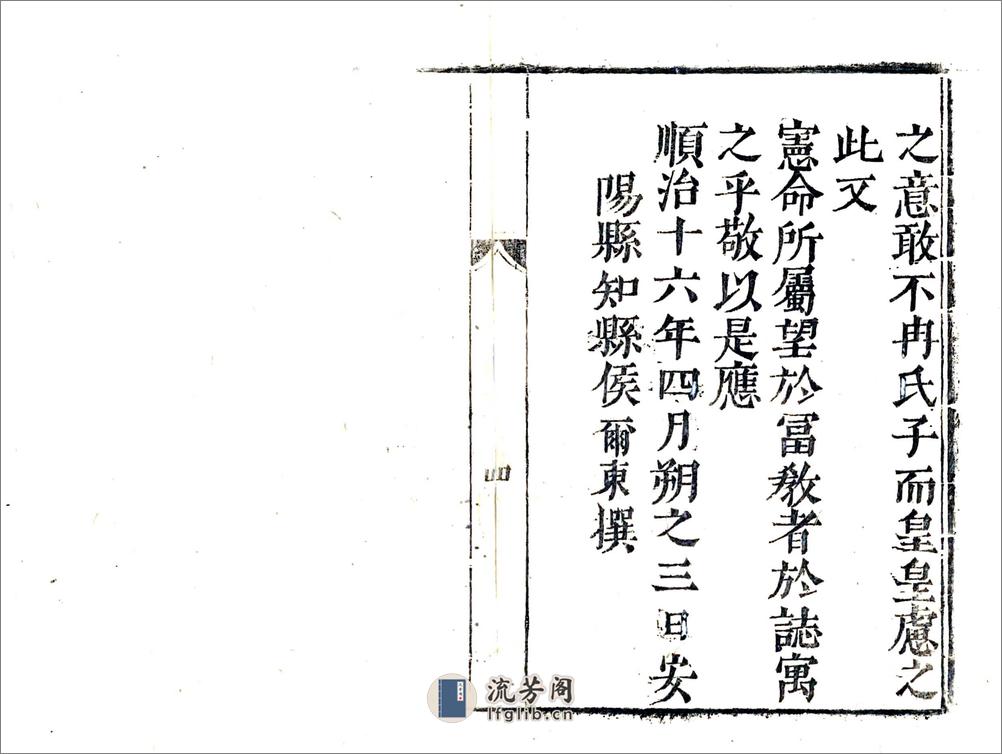 之意敢不冉氏子而皇皇慮之
此又
憲命所屬望於冨敎者於誌寓
之乎敬以是應
順治十六年四月朔之三日安
陽縣知縣侯爾東撰
四
流芳阁
lfglib.cn